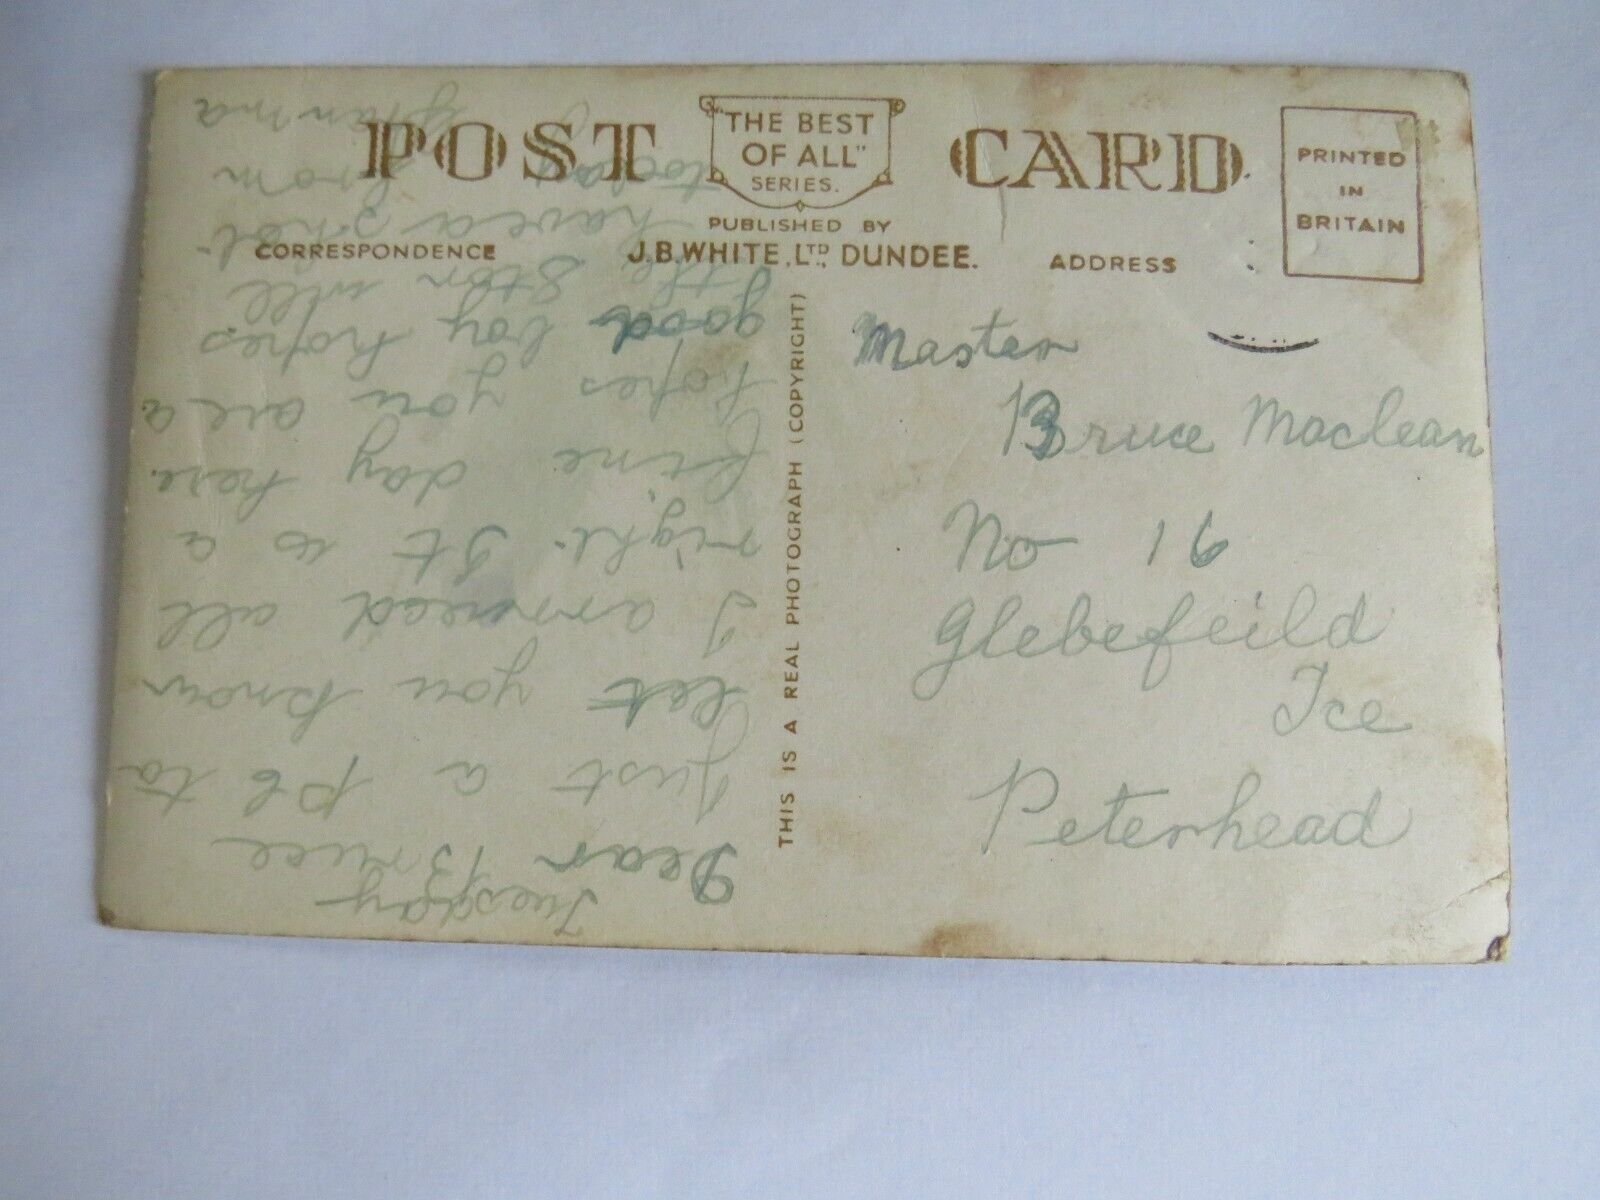 POST CARD
"THE BEST
OF ALL"
SERIES.
PUBLISHED BY
J.B. WHITE, LTD., DUNDEE.
CORRESPONDENCE
ADDRESS
PRINTED
IN
BRITAIN
THIS IS A REAL PHOTOGRAPH (COPYRIGHT)
Master
Bruce Maclean
No 16
Glebefeild
Tce
Peterhead
Tuesday
Dear Bruce
Just a pc to
let you know
I arrived all
right. It is a
fine day here
hopes you are a
good boy hopes
the will
have a
today from